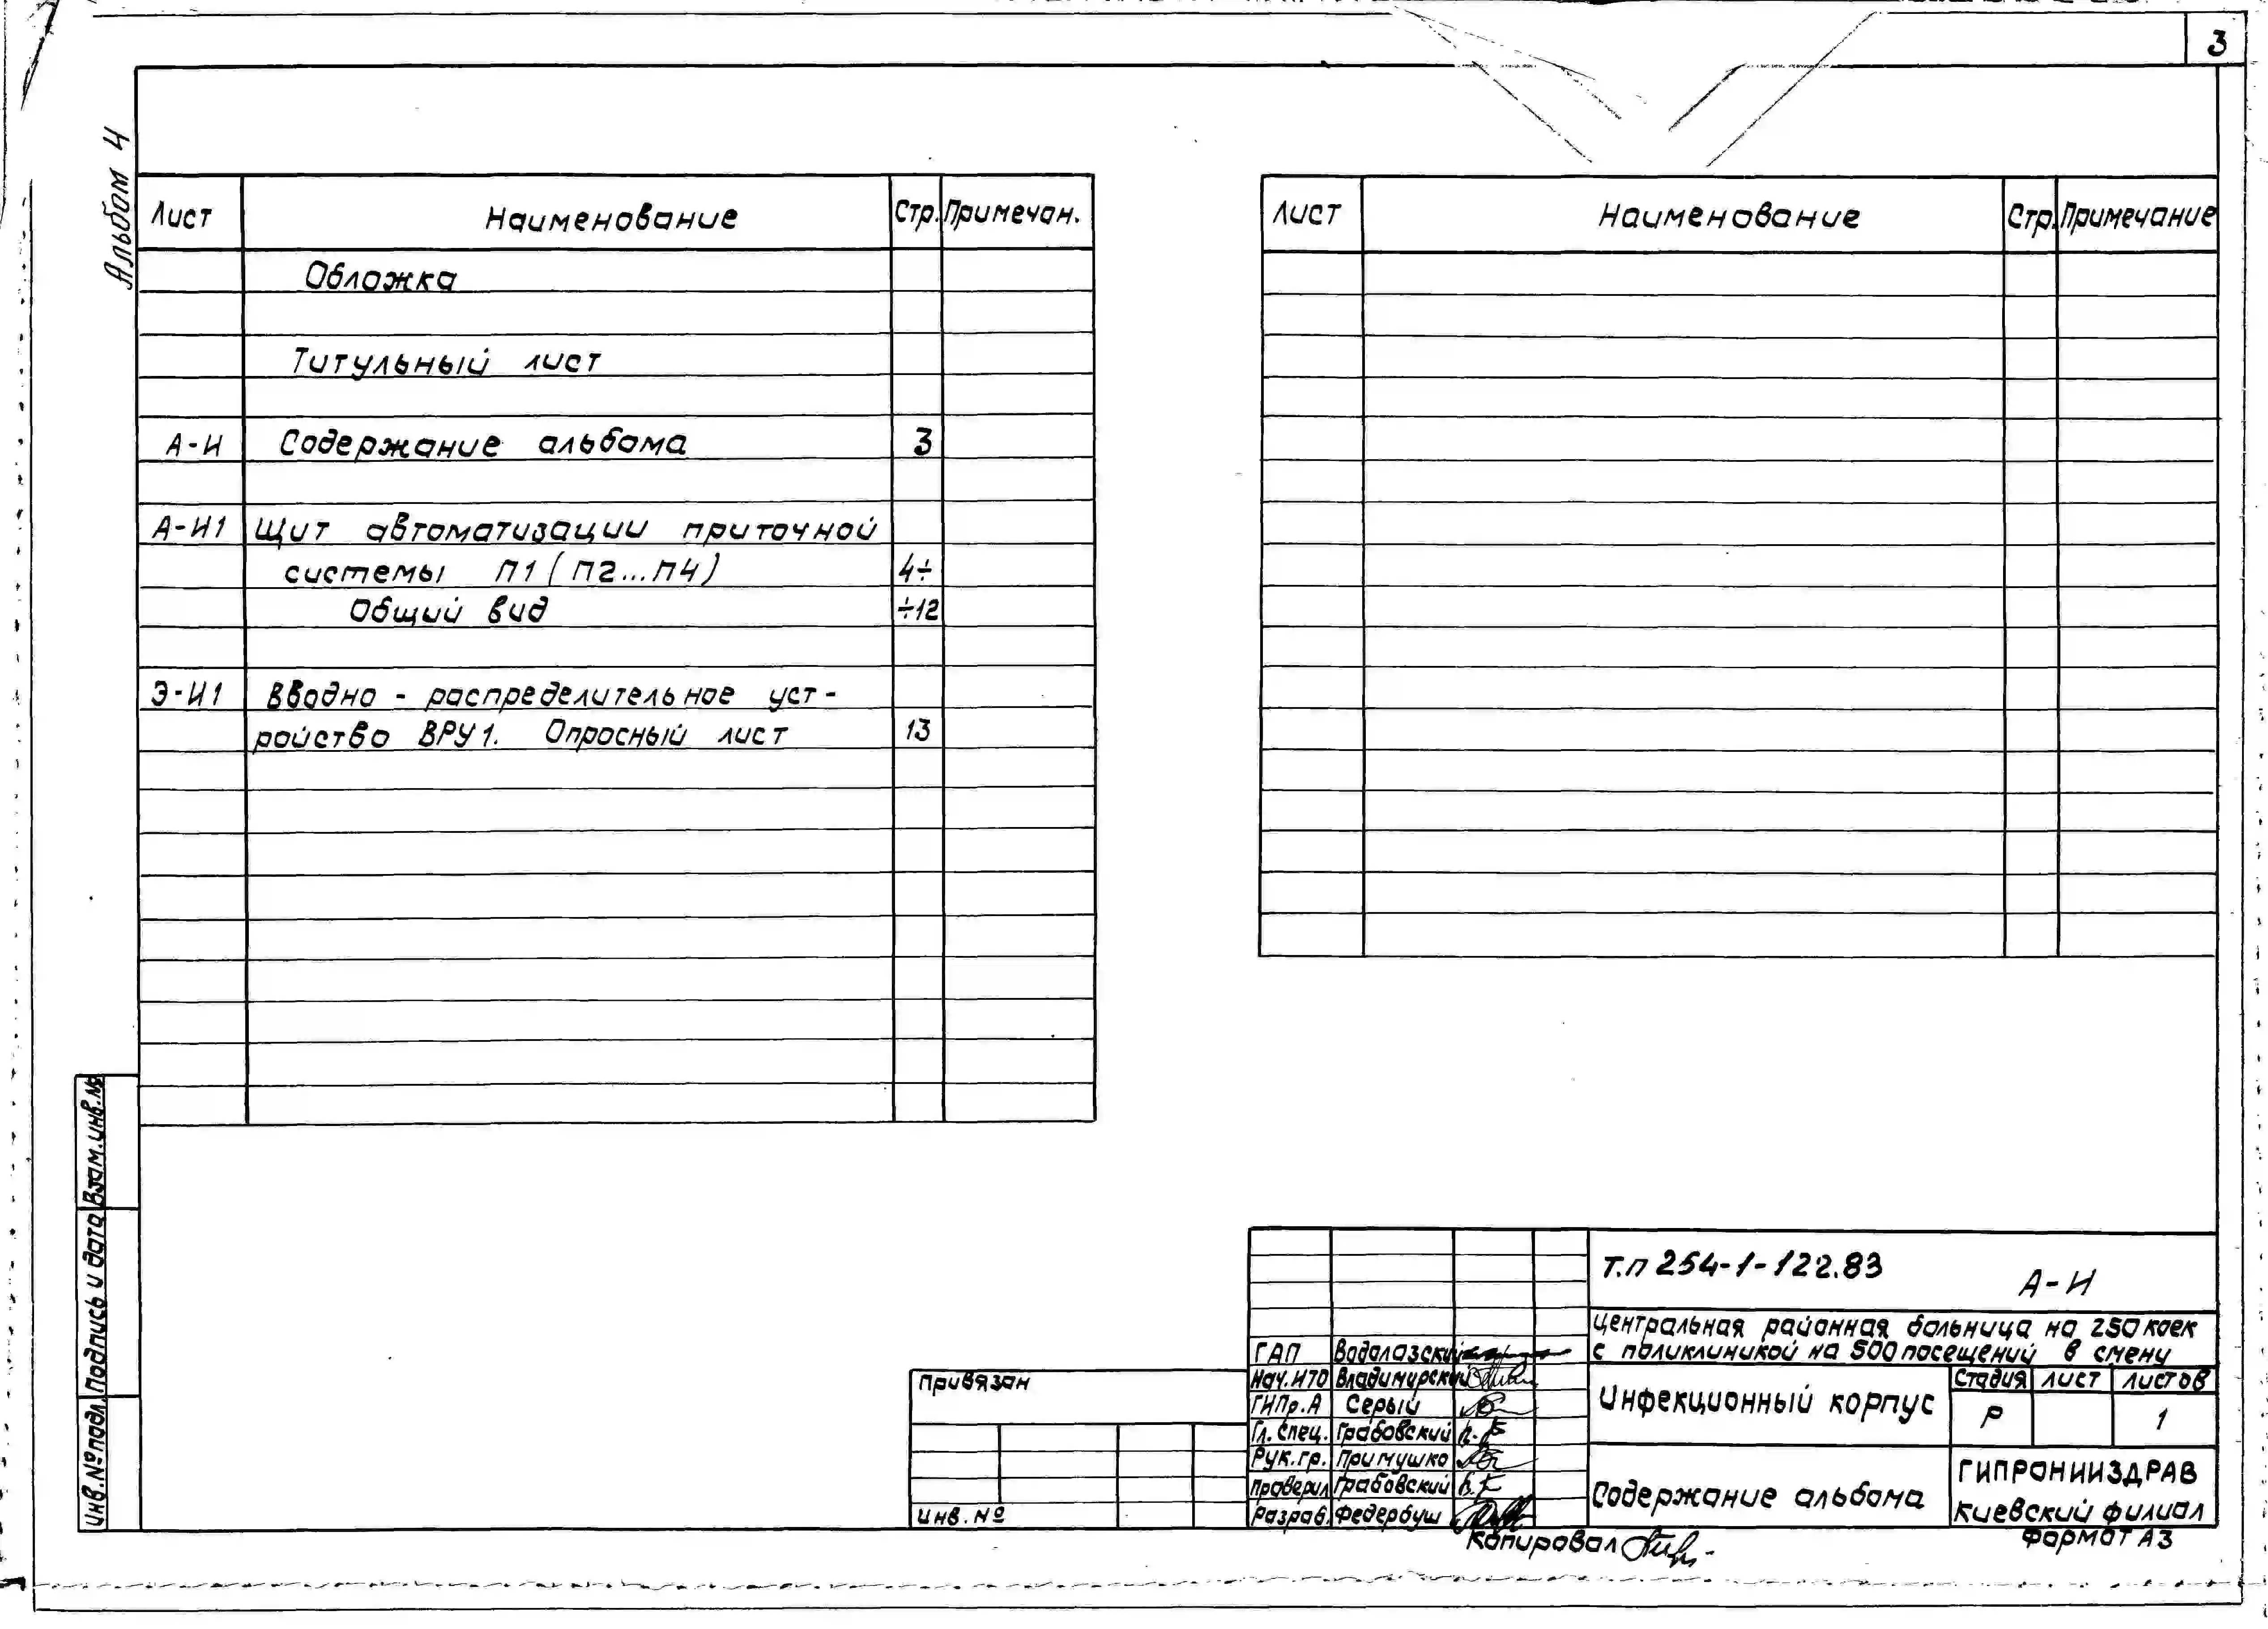 3
Альбом 4
Лист Наименование Стр. Примечан.
Обложка
Титульный лист
А-И Содержание альбома 3
А-И1 Щит автоматизации приточной
системы П1 (П2...П4) 4÷
Общий вид ÷12
Э-И1 Вводно - распределительное уст-
ройство ВРУ1. Опросный лист 13
Лист Наименование Стр. Примечание
Взам.инв.№
Подпись и дата
Инв.№подл.
Привязан
Инв.№
ГАП Водолазский
Нач.ИТО Владимирский
ГИПр.А Серый
Гл.спец. Грабовский
Рук.гр. Примушко
Проверил Грабовский
Разраб. Федербуш
Т.П 254-1-122.83
А-И
Центральная районная больница на 250 коек
с поликлиникой на 500 посещений в смену
Инфекционный корпус
Стадия Лист Листов
Р 1
Содержание альбома
ГИПРОНИИЗДРАВ
Киевский филиал
Копировал
Формат А3